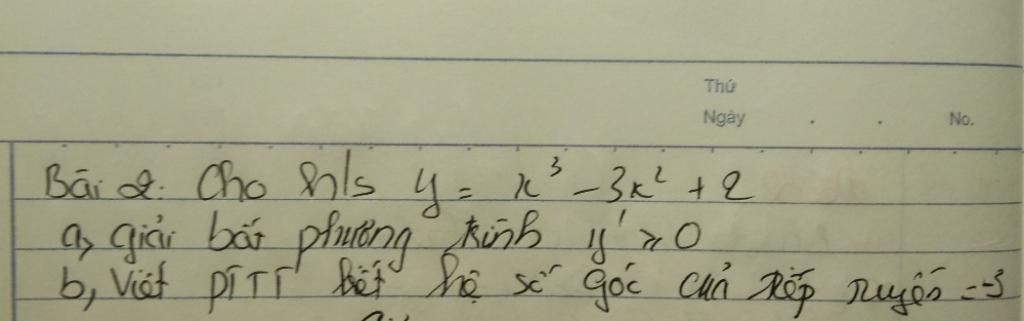 Thứ
Ngày . . No.
Bài 2: Cho h/s y = x³ - 3x² + 2
a, giải bất phương trình y' ≥ 0
b, Viết PTTT biết hệ số góc của tiếp tuyến = -3